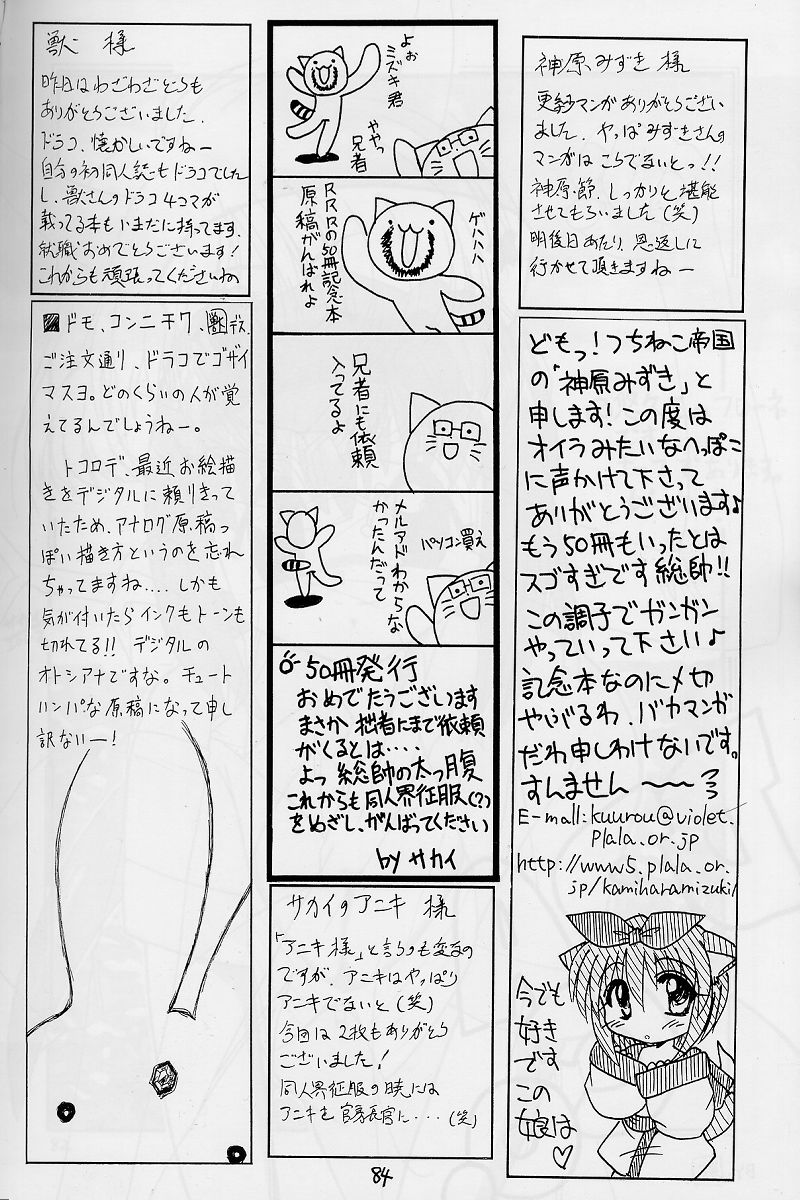 神原みずき 様
更紗マンガありがとうござい
ました。やっぱみずきさんの
マンガはこうでないとっ!!
神原節、しっかりと堪能
させてもらいました(笑)
明後日あたり、恩返しに
行かせて頂きますねー
どもっ!つちねこ帝国
の「神原みずき」と
申します!この度は
オイラみたいなへっぽこ
に声かけて下さって
ありがとうございます♪
もう50冊もいったとは
スゴすぎです総帥!!
この調子でガンガン
やっていって下さい♪
記念本なのに〆切
やぶるわ、バカマンガ
だわ申しわけないです。
すんません〜〜
E-mall:kuurou@violet.
plala.or.jp
http://www5.plala.or.
jp/kamiharamizuki/
今でも
好き
です
この
娘は♡
よぉ
ミズキ君
ややっ
兄者
ゲハハハ
RRRの50冊記念本
原稿がんばれよ
兄者にも依頼
入ってるよ
メルアドわからな
かったんだって
パソコン買え
50冊発行
おめでたうございます
まさか拙者にまで依頼
がくるとは・・・・
よっ総帥の太っ腹
これからも同人界征服(?)
をめざし、がんばってください
by サカイ
サカイのアニキ 様
「アニキ様」と言うのも変なの
ですが、アニキはやっぱり
アニキでないと(笑)
今回は2枚もありがとう
ございました!
同人界征服の暁には
アニキを官房長官に・・・(笑)
獣 様
昨日はわざわざどうも
ありがとうございました。
ドラコ、懐かしいですねー
自分の初同人誌もドラコでした
し、獣さんのドラコ4コマが
載ってる本もいまだに持ってます。
就職おめでとうございます!
これからも頑張ってくださいね
ドモ、コンニチワ、獣デス。
ご注文通り、ドラコでゴザイ
マスヨ。どのくらいの人が覚
えてるんでしょうねー。
トコロデ、最近お絵描
きをデジタルに頼りきって
いたため、アナログ原稿っ
ぽい描き方というのを忘れ
ちゃってますね....しかも
気が付いたらインクもトーンも
切れてる!!デジタルの
オトシアナですな。チュート
ハンパな原稿になって申し
訳ないー!
84